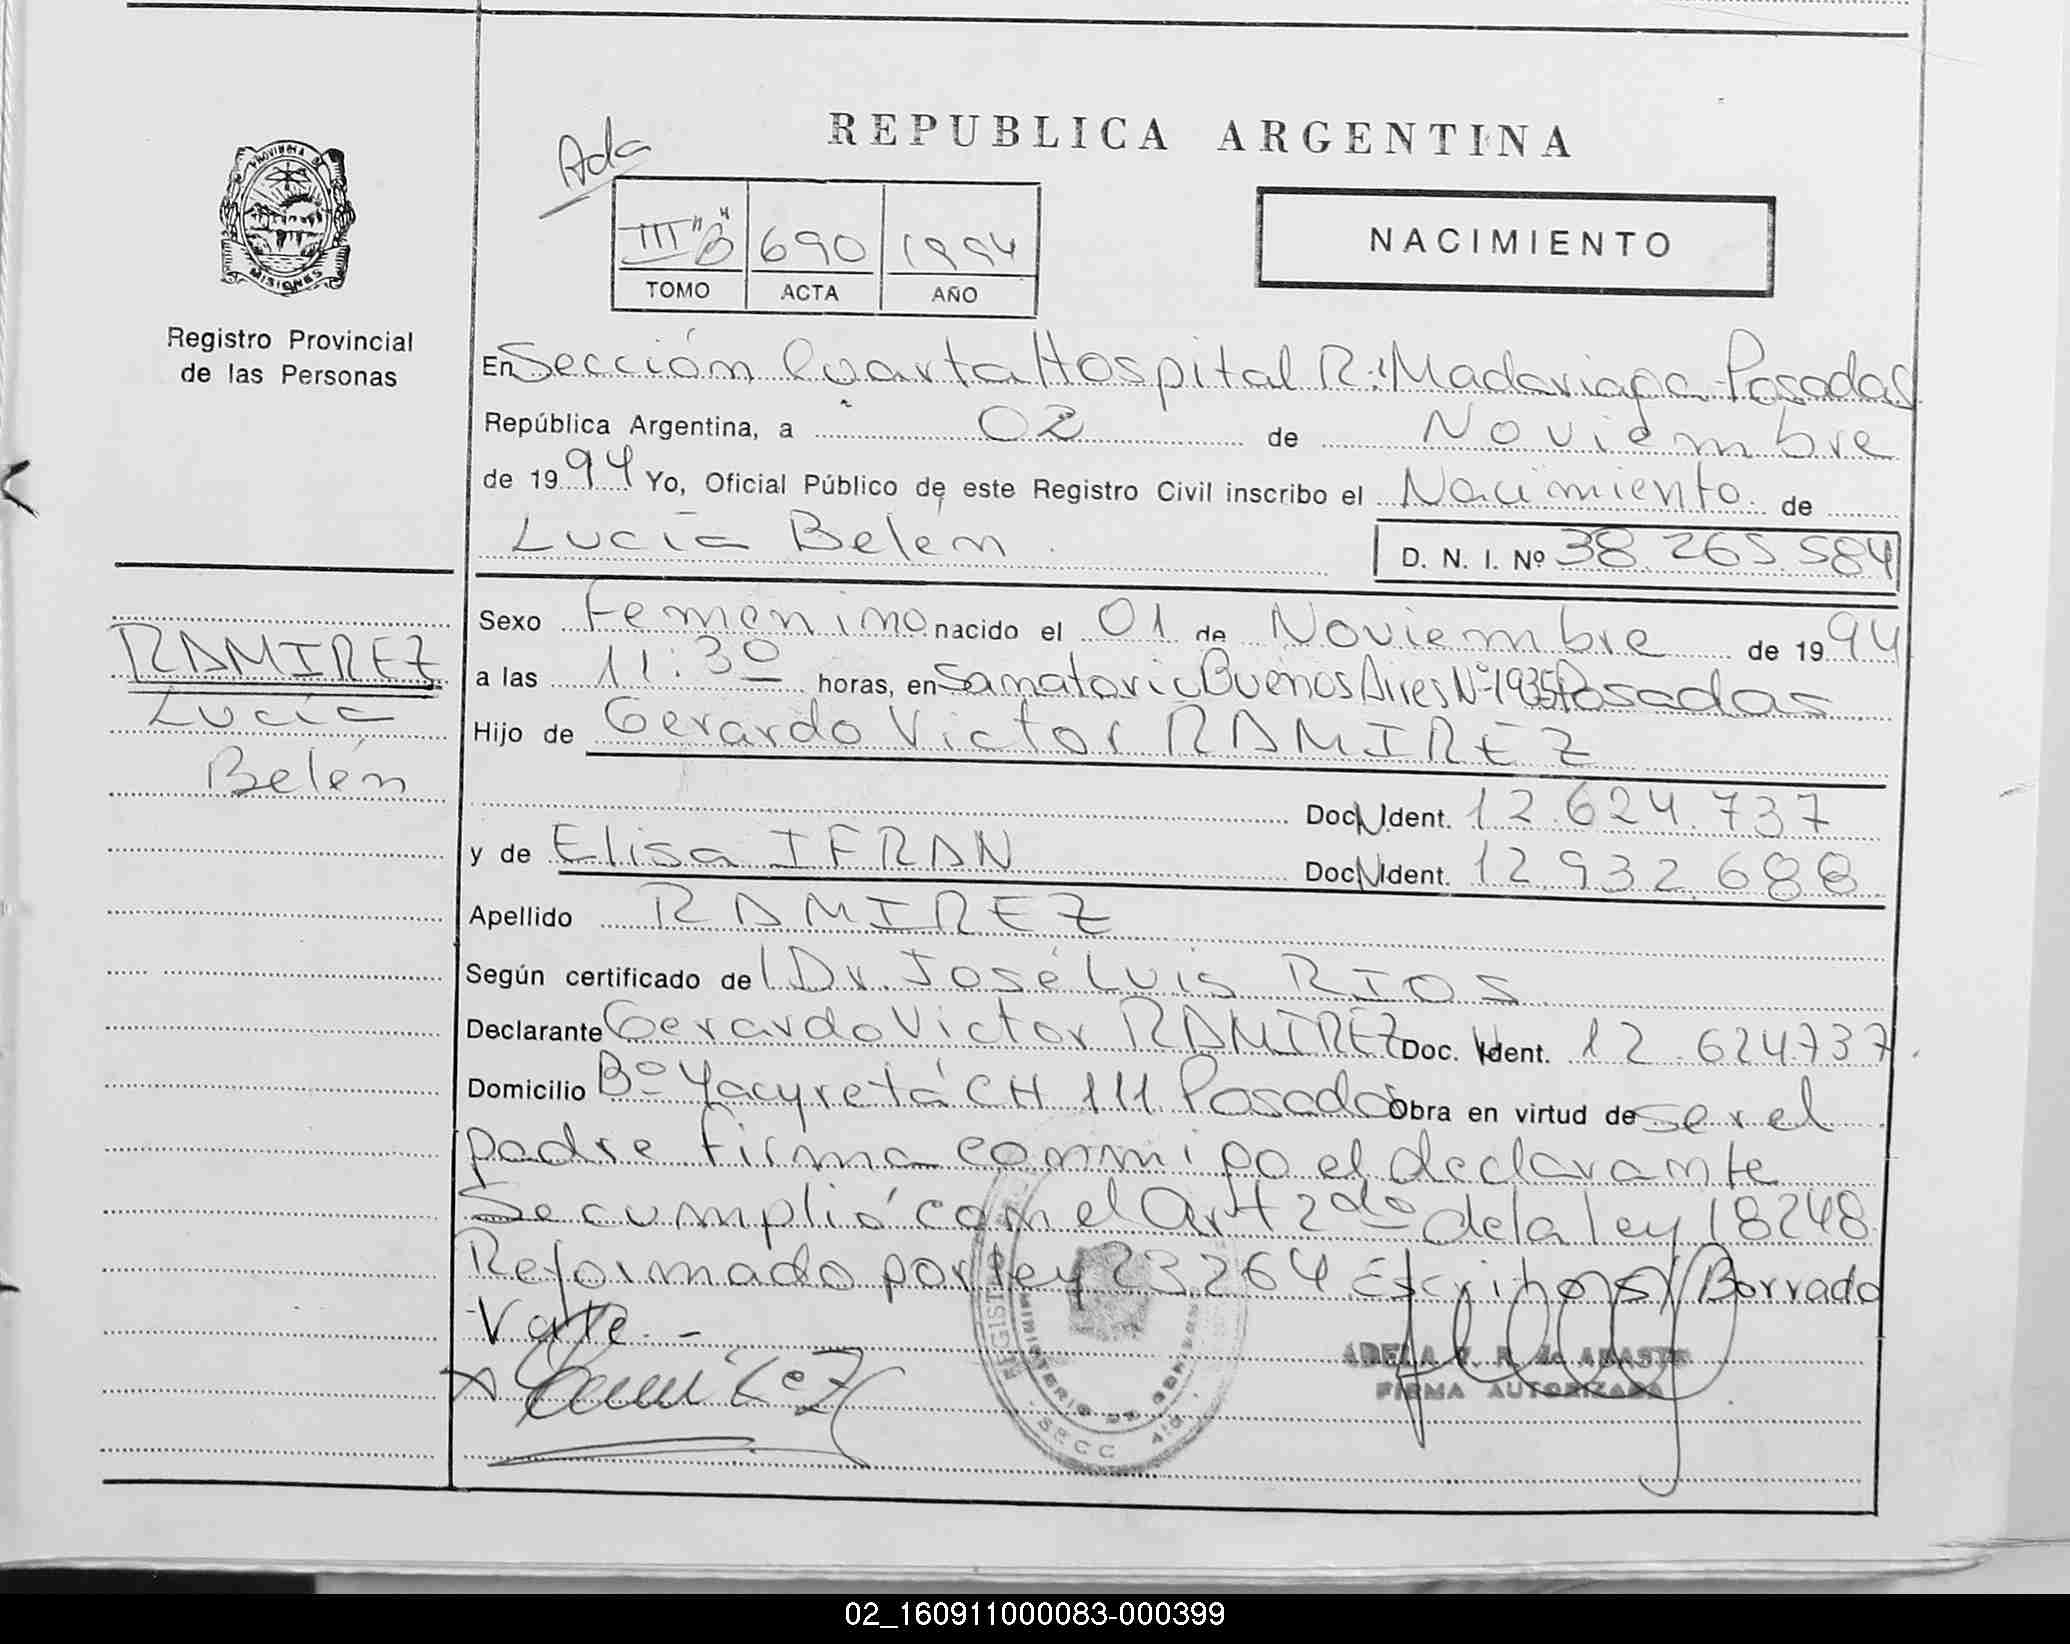 REPUBLICA ARGENTINA
Ada
PROVINCIA DE
MISIONES
III "B" 690 1994
TOMO ACTA AÑO
NACIMIENTO
Registro Provincial
de las Personas
En Sección Cuarta Hospital R. Madariaga - Posadas
República Argentina, a 02 de Noviembre
de 1994 Yo, Oficial Público de este Registro Civil inscribo el Nacimiento de
Lucía Belén D. N. I. Nº 38.265.584
RAMIREZ
Lucía
Belén
Sexo Femenino nacido el 01 de Noviembre de 1994
a las 11:30 horas, en Sanatorio Buenos Aires Nº 1935 Posadas
Hijo de Gerardo Victor RAMIREZ
Doc. Ident. 12.624.737
y de Elisa IFRAN Doc. Ident. 12.932.688
Apellido RAMIREZ
Según certificado del Dr. José Luis RIOS
Declarante Gerardo Victor RAMIREZ Doc. Ident. 12.624.737
Domicilio Bº Yacyretá CH 111 Posadas Obra en virtud de ser el
padre firma conmigo el declarante
Se cumplió con el Art 2do de la ley 18248
Reformado por ley 23264 Escritos/Borrado
Vale.-
Ramirez
ADELA
FIRMA AUTORIZADA
MINISTERIO DE
SECC.
02_160911000083-000399